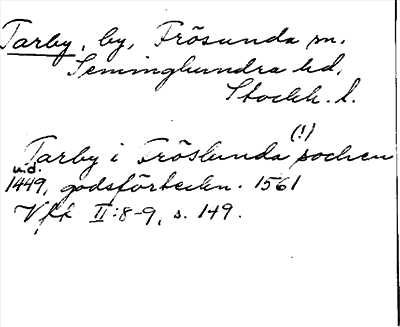 Tarby, by, Frösunda sn.
Seminghundra hd.
Stockh. l.
(!)
Tarby i Fröslunda socken
u.d.
1449, godsförteckn. 1561
Vfk II:8-9, s. 149.